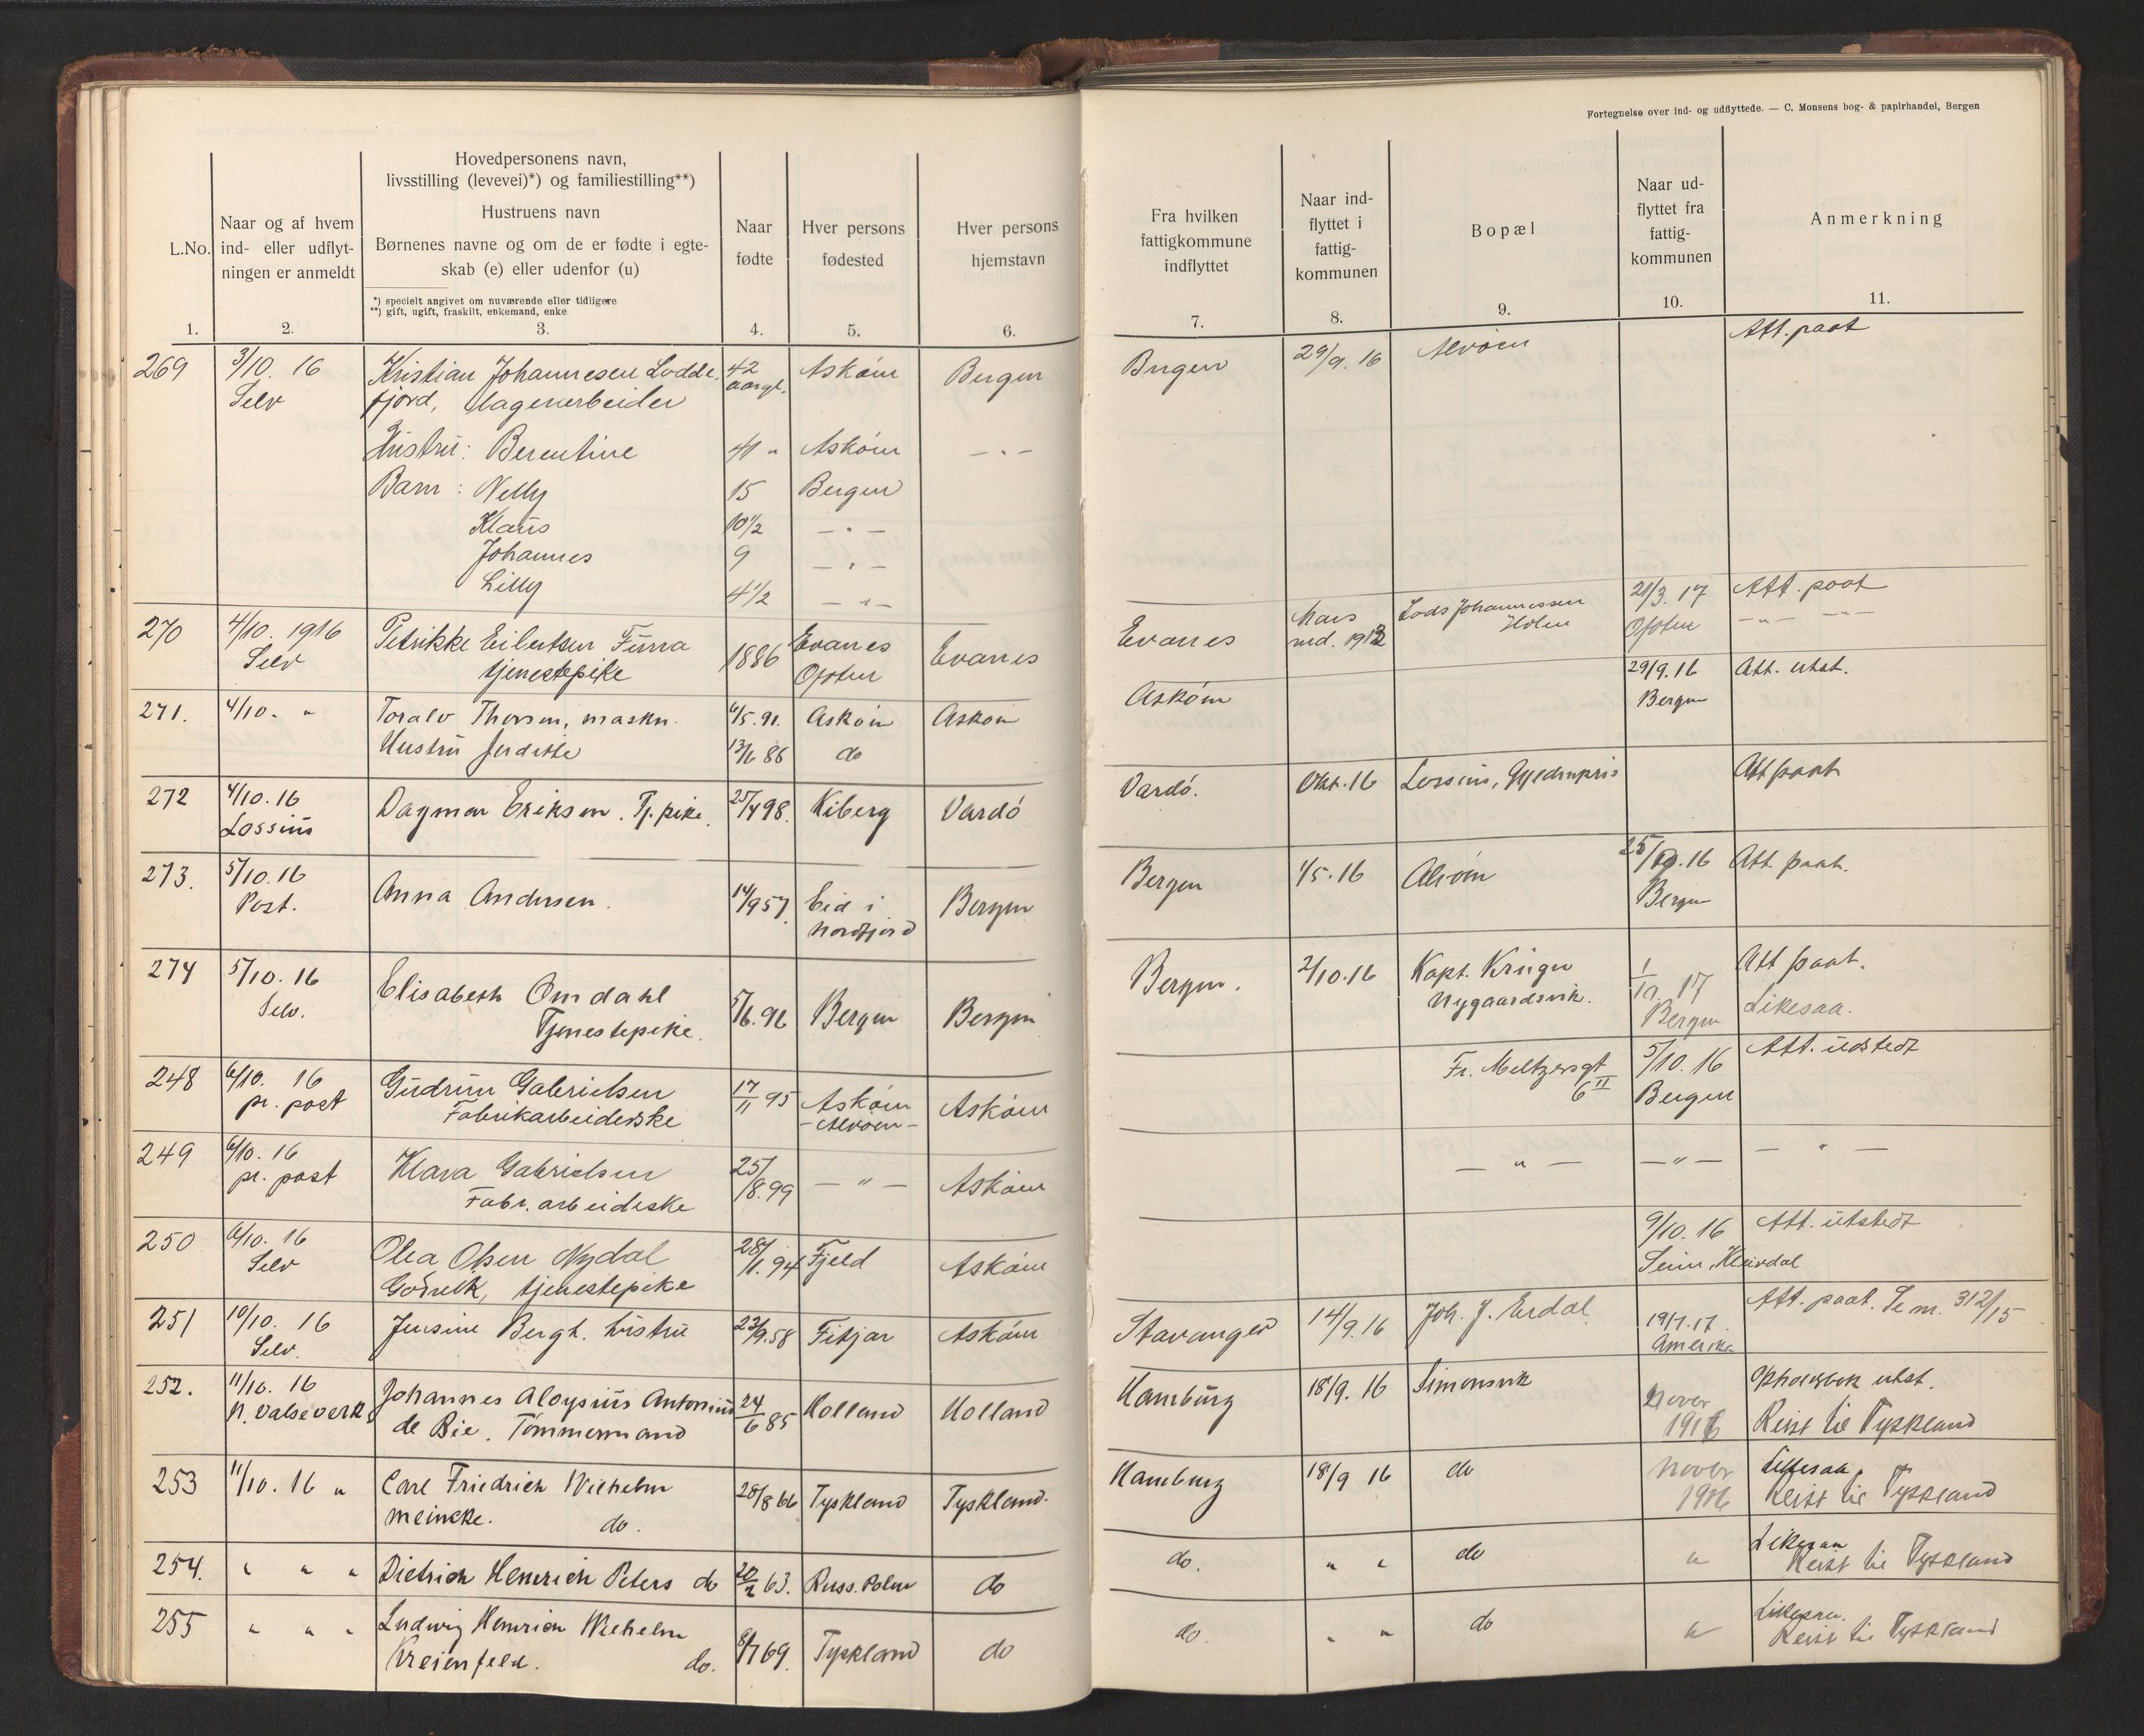 Fortegnelse over ind- og udflyttede. — C. Monsens bog- & papirhandel, Bergen
L.No.
1.
Naar og af hvem
ind- eller udflyt-
ningen er anmeldt
2.
Hovedpersonens navn,
livsstilling (levevei)*) og familiestilling**)
Hustruens navn
Børnenes navne og om de er fødte i egte-
skab (e) eller udenfor (u)
*) specielt angivet om nuværende eller tidligere
**) gift, ugift, fraskilt, enkemand, enke
3.
Naar
fødte
4.
Hver persons
fødested
5.
Hver persons
hjemstavn
6.
Fra hvilken
fattigkommune
indflyttet
7.
Naar ind-
flyttet i
fattig-
kommunen
8.
Bopæl
9.
Naar ud-
flyttet fra
fattig-
kommunen
10.
Anmerkning
11.
269 3/10. 16 Kristian Johannesen Lodde- 42 Askøen Bergen Bergen 29/9. 16 Alvøen Att. paat
Selv fjord, lagerarbeider aargl.
Hustru: Berentine 41 " Askøen — " —
Barn: Nelly 15 Bergen
Klaus 10 1/2 — " —
Johannes 9 — " —
Lilly 4 1/2 — " —
270 4/10. 1916 Petrikke Eilertsen 1886 Evanes Evanes Evanes Mars Lods Johannessen 21/3. 17 Att. paat
Selv tjenestepike Ofoten md. 1912 Holen Ofoten — " —
271. 4/10. " Toralv Thorsen, maskn. 6/5. 91. Askøen Askøen Askøen 29/9. 16 Att. utst.
Hustru 13/6 86 do Bergen
272 4/10. 16 Dagmar Eriksen. Tj. pike. 25/4 98. Kiberg Vardö Vardö. Okt. 16 Lossius, Gyldenpris Att paat
Lossius
273. 5/10. 16 Anna Andersen. 14/9 57. Eid i Bergen Bergen 1/5. 16 Alvøen 25/10. 16 Att. paat.
Post. Nordfjord Bergen
274 5/10. 16 Elisabeth Omdahl 5/6. 92 Bergen Bergen Bergen. 2/10. 16 Kapt. Krüger 17 Att paat.
Selv. Tjenestepike. Nygaardsvik. Bergen Likesaa.
248 6/10. 16 Gudrun Gabrielsen 17/11 95 Askøen Askøen Fr. Meltzersgt 5/10. 16 Att. udstedt
pr. post Fabrikarbeiderske - Alvøen - 6 II Bergen
249 6/10. 16 Klara Gabrielsen 25/8. 99 — " — Askøen — " — — " — — " —
pr. post Fabr. arbeideske
250 6/10. 16 Olea Olsen Nydal 28/1. 94 Fjeld Askøen 9/10. 16 Att. utstedt
Selv Godvik, tjenestepike Seim,
251 10/10. 16 Jensine Bergh. hustru 23/9. 58 Fitjar Askøen Stavanger 14/9. 16 Joh. J. Erdal 19/7. 17. Att. paat. Se nr. 312/15
Selv. Amerika
252. 11/10. 16 Johannes Aloysius Antonius 24/6 85 Holland Holland Hamburg 18/9. 16 Simonsvik Novbr Opholdsbok utst.
N. Valseverk de Bie. Tömmermand 1916 Reist til Tyskland
253 11/10. 16 " Carl Friedrich Wilhelm 28/8 66 Tyskland Tyskland. Hamburg 18/9 16 do Novbr Likesaa.
Meincke. do. 1916 Reist til Tyskland
254. " " " Dietrich Heinrich Peters do 20/2 63. Russ. Polen do do. " " do " Likesaa
Reist til Tyskland
255 " " " Ludwig Heinrich Wilhelm 8/7 69. Tyskland do do. " " do " Likesaa.
Kreienfeld. do. Reist til Tyskland